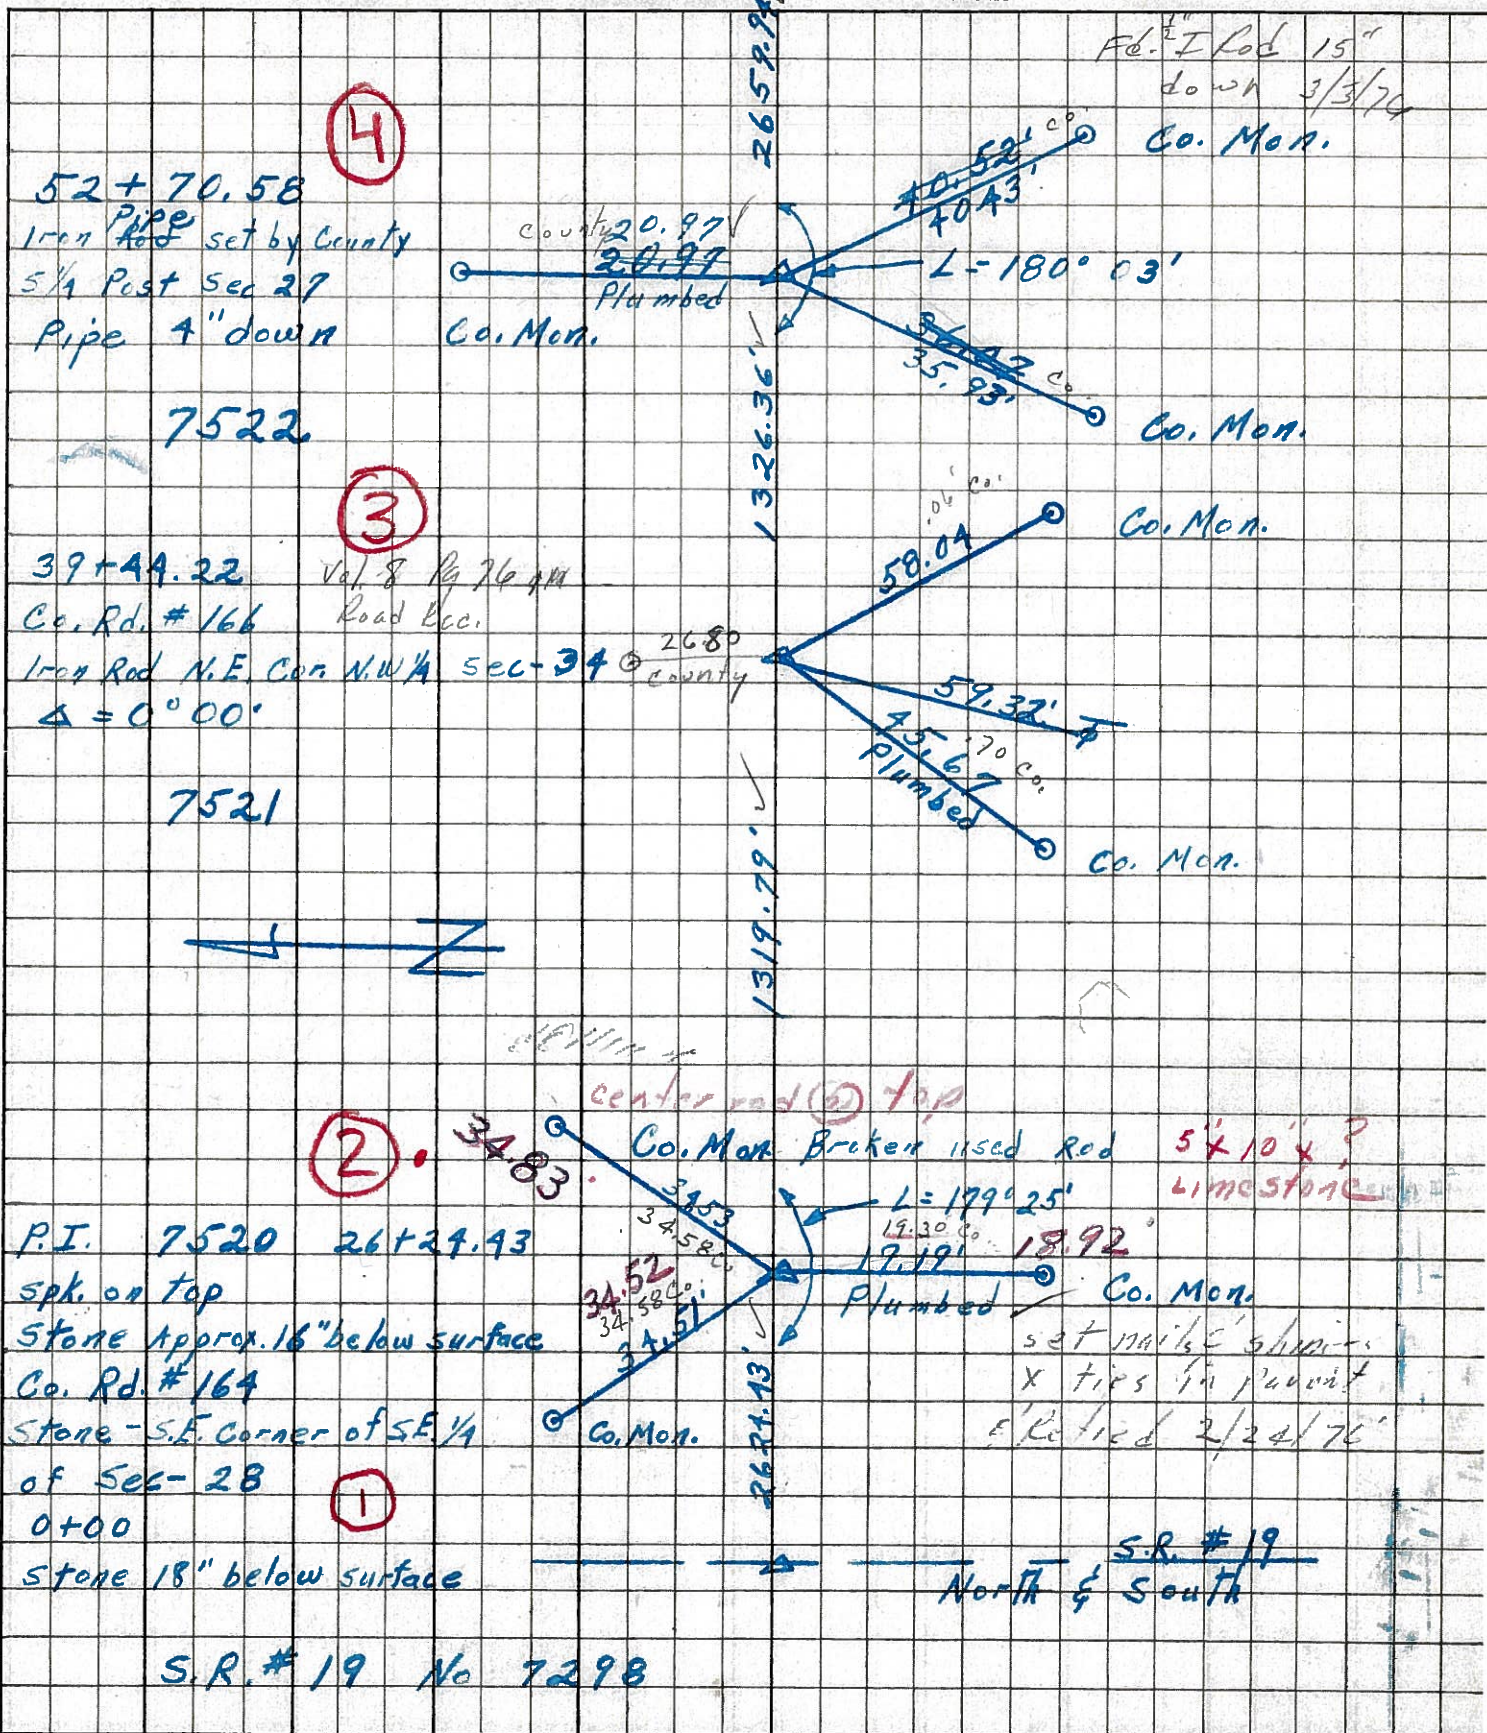 2659.94
Fd. ½" I Rod 15"
down 3/3/76
4
52 + 70.58
Pipe
Iron Rod set by County
S 1/4 Post Sec 27
Pipe 4" down
7522
County 20.97 ✓
20.97
Plumbed
Co. Mon.
40.52' Co
40.43'
Co. Mon.
L = 180° 03'
35.93' Co.
Co. Mon.
1326.36' ✓
3
39+44.22
Vol. 8 Pg 76
Road Rec.
Co. Rd. # 166
Iron Rod N.E. Cor. N.W 1/4 Sec-34
Δ = 0° 00'
7521
26.80
County
.06' Co.
58.04
Co. Mon.
59.32'
45.67
.70 Co.
Plumbed
Co. Mon.
1319.79' ✓
N
center rod top
2
34.83
Co. Mon. Broken used Rod
5" x 10" x ?
Limestone
34.53
34.58 Co.
L = 179° 25'
19.30 Co.
17.19'
18.92'
Plumbed
Co. Mon.
34.52
34.58 Co.
34.51'
Co. Mon.
P.I. 7520 26+24.43
spk. on top
Stone Approx. 16" below surface
Co. Rd. # 164
Stone - S.E. Corner of S.E. 1/4
of Sec- 28
set nails &
x ties in
& Retied 2/24/76
2624.43' ✓
1
0+00
Stone 18" below surface
S.R. # 19
North & South
S.R. # 19 No 7298